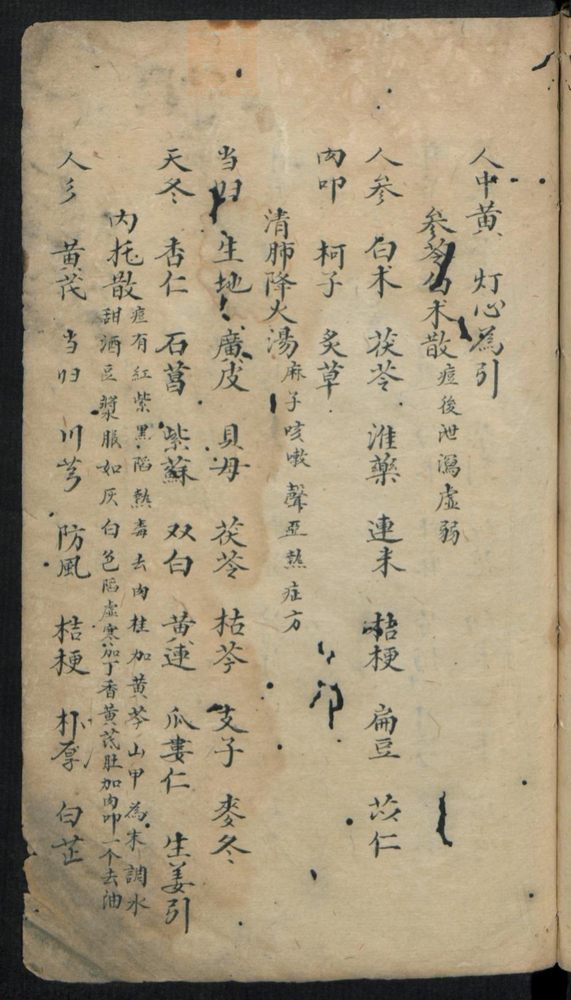 人中黄 灯心為引
參苓白术散 痘後泄瀉虛弱
人参 白术 茯苓 淮藥 連末 桔梗 扁豆 苡仁
肉叩 柯子 炙草
清肺降火湯 麻子咳嗽聲亞熱症方
当归 生地 廣皮 貝母 茯苓 枯芩 支子 麥冬
天冬 杏仁 石菖 紫蘇 双白 黄連 瓜蔞仁 生姜引
内托散 痘有紅紫黑陷熱毒去肉桂加黄芩山甲為末調水
甜酒豆漿服如灰白色陷虛寒加丁香黄茋肚加肉叩一个去油
人彡 黄茋 当归 川芎 防風 桔梗 朴厚 白芷